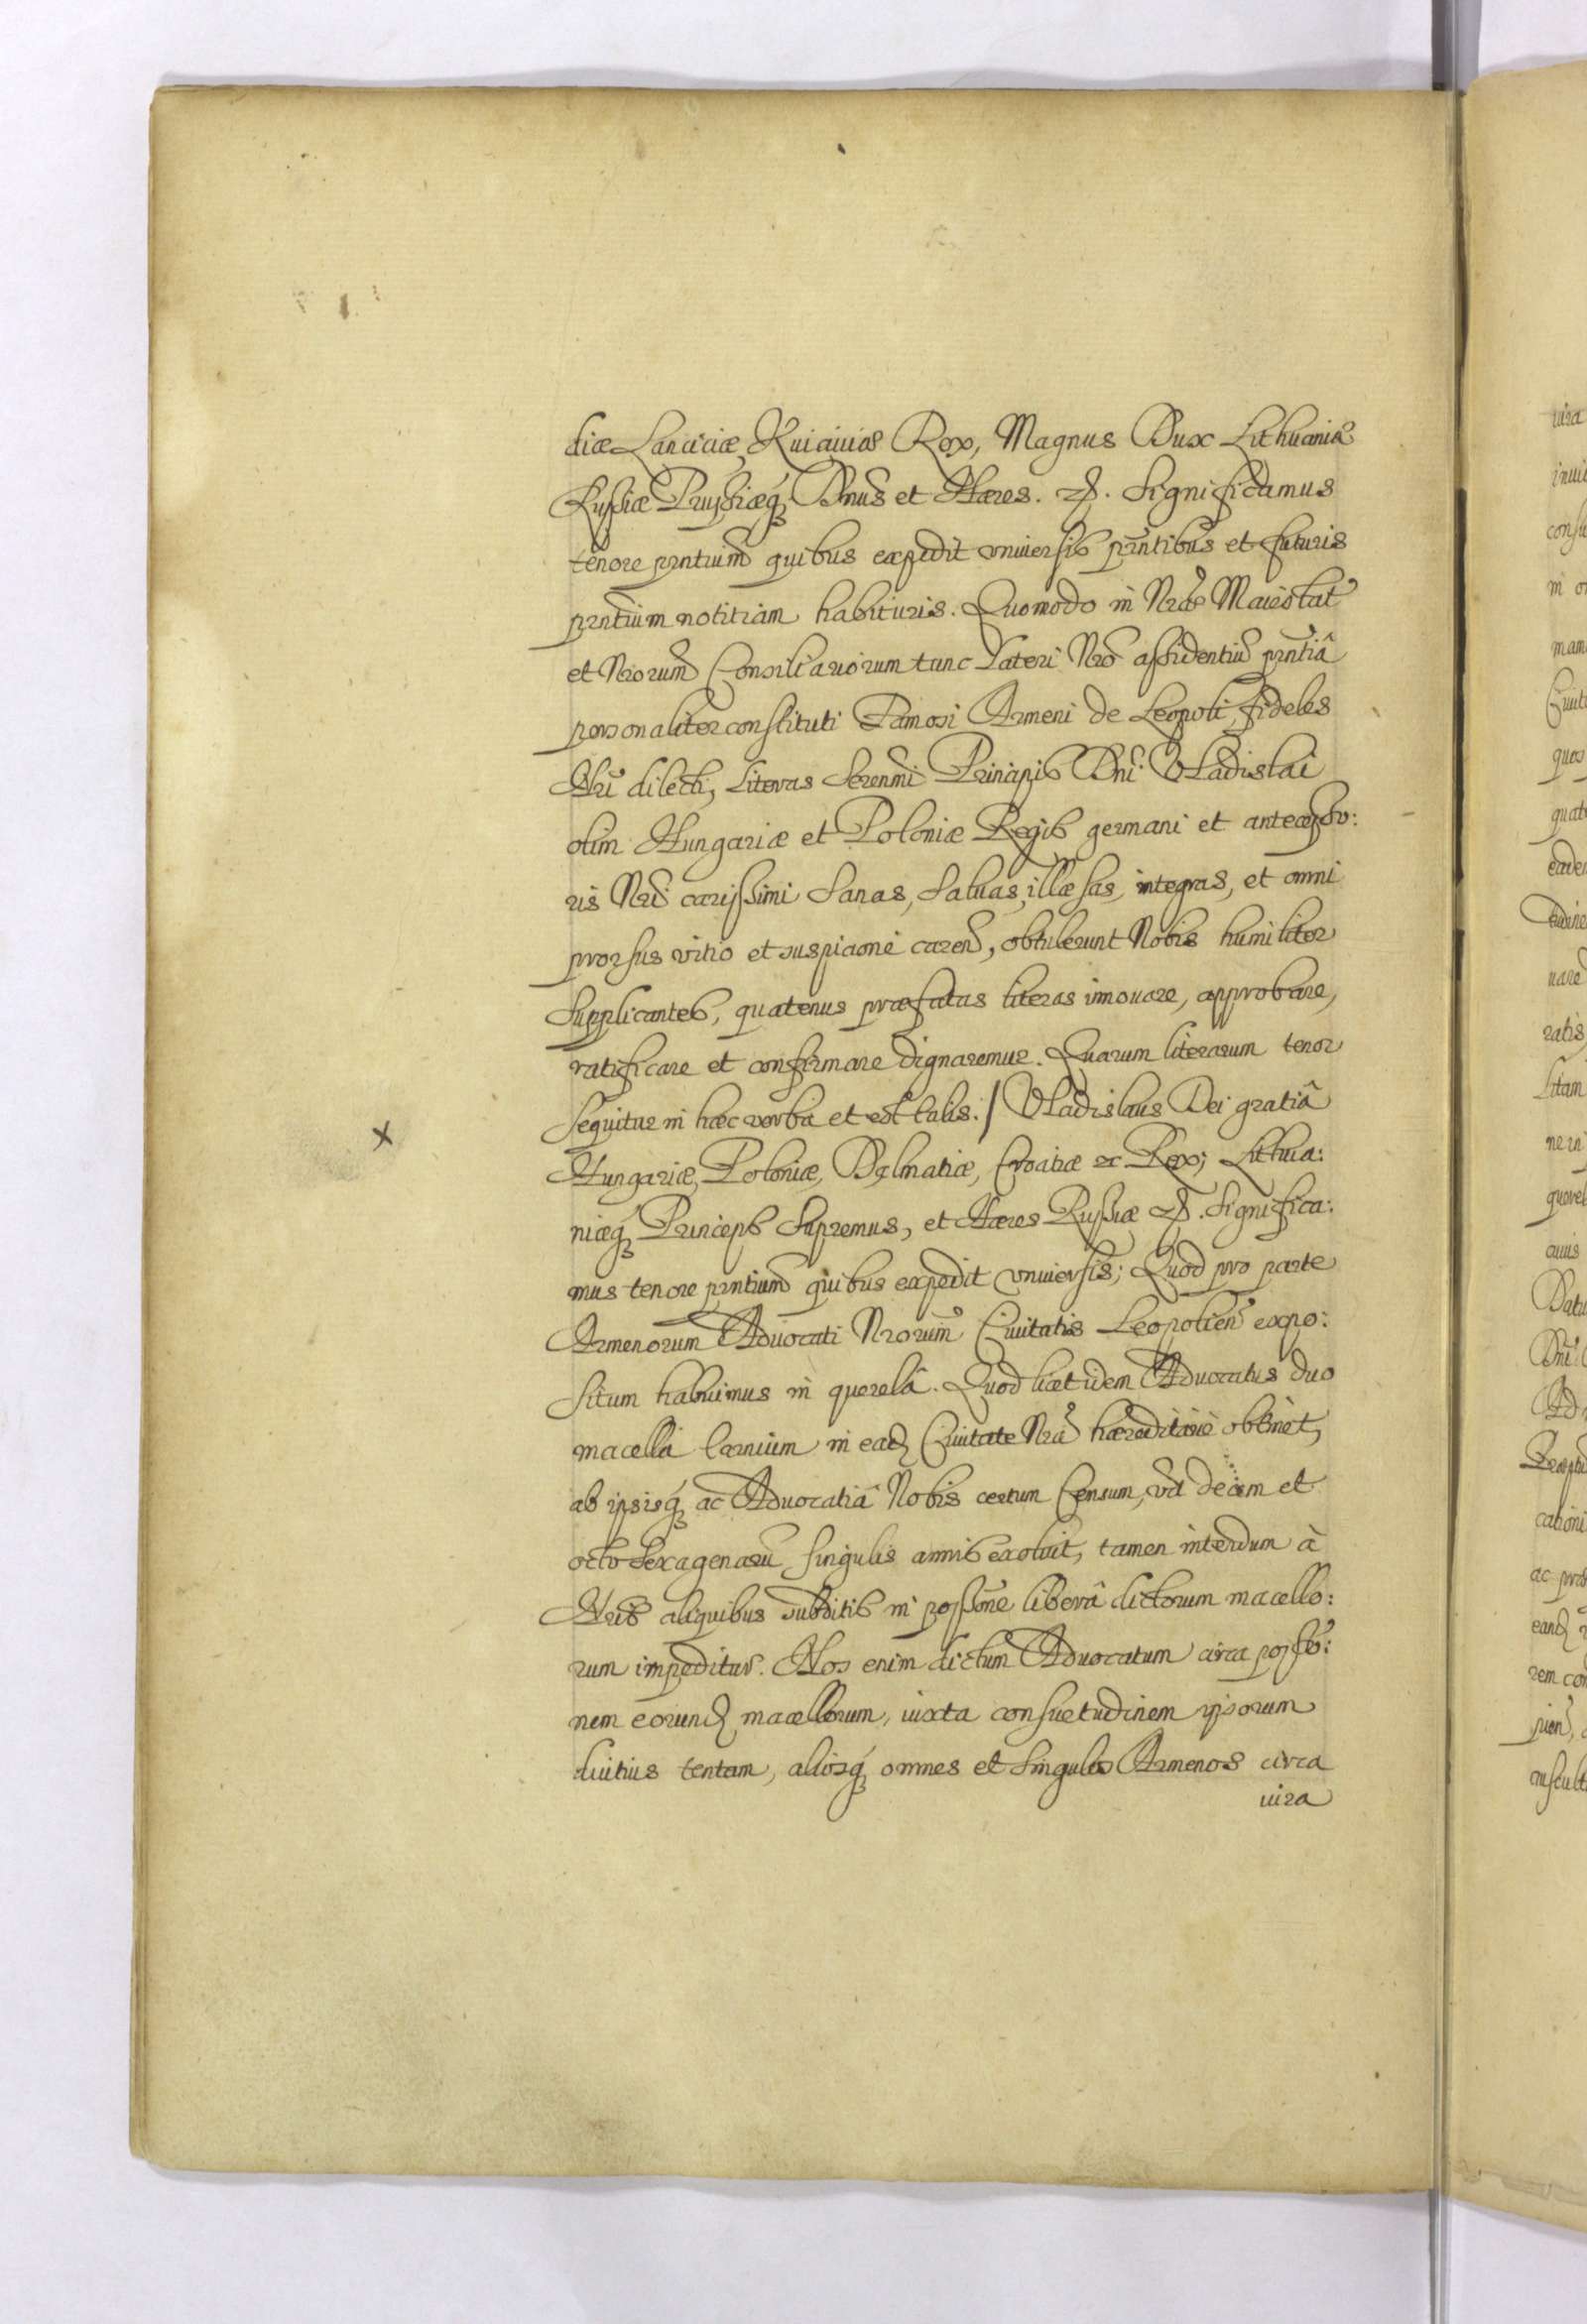 diæ Lanciciæ, Kuiaviæ Rex, Magnus Dux Lithuaniæ
Russiæ Prussiæq; Dnus et Hæres. etc. Significamus
tenore pntium quibus expedit universis pntibus et futuris
pntium notitiam habituris. Quomodo in Nræ Maiestat
et Nrorum Consiliariorum tunc Lateri Nro assidentiu pntiâ
personaliter constituti Famosi Armeni de Leopoli, fideles
Nri dilecti, Literas Serenmi Principis Dni Vladislai
olim Hungariæ et Poloniæ Regis germani et antecesso:
ris Nri carissimi Sanas, Saluas, illæsas, integras, et omni
prorsus vitio et suspicione caren, obtulerunt Nobis humiliter
Supplicantes, quatenus præfatas literas innouare, approbare,
ratificare et confirmare dignaremur. Quarum literarum tenor
Sequitur in hæc verba et est talis. / Vladislaus Dei gratiâ
Hungariæ, Poloniæ, Dalmatiæ, Croatiæ etc Rex; Lithua:
niæq; Princeps Supremus, et Hæres Russiæ etc. Significa:
mus tenore pntium quibus expedit vniuersis; Quod pro parte
Armenorum Aduocati Nrorum Ciuitatis Leopolien expo:
situm habuimus in querelâ. Quod licet idem Aduocatus duo
macella Carnium in ead Ciuitate Nrâ hæreditarie obtinet,
ab ipsisq; ac Aduocatiâ Nobis certum Censum, vd decim et
octo Sexagenaru singulis annis exoluit, tamen interdum à
Nris aliquibus subditis in possone liberâ dictorum macello:
rum impeditur. Nos enim dictum Aduocatum circa possio:
nem eorund macellorum, iuxta consuetudinem ipsorum
diutius tentam, aliosq; omnes et singulos Armenos circa
iura